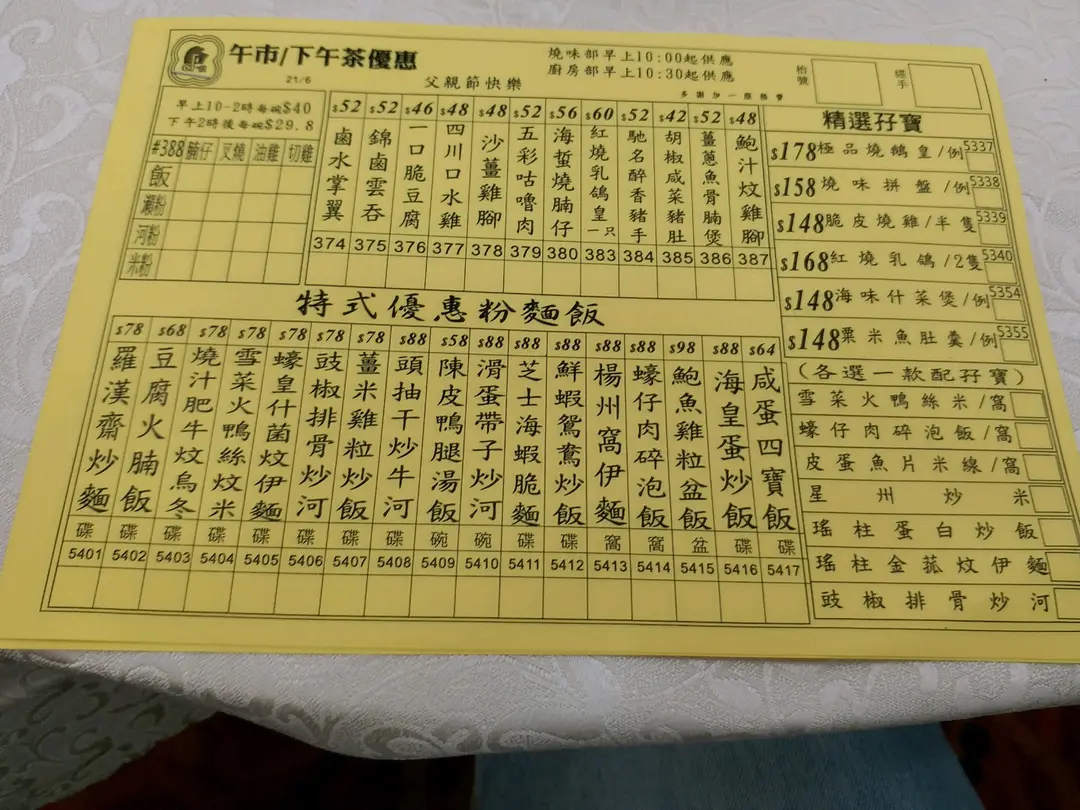 午市/下午茶優惠
21/6
父親節快樂
燒味部早上10:00起供應
廚房部早上10:30起供應
多謝加一服務費
枱號
經手
早上10-2時每碗$40
下午2時後每碗$29.8
#388 腩仔 叉燒 油雞 切雞
飯
瀨粉
河粉
米粉
$52 鹵水掌翼 374
$52 錦鹵雲吞 375
$46 一口脆豆腐 376
$48 四川口水雞 377
$48 沙薑雞腳 378
$52 五彩咕嚕肉 379
$56 海蜇燒腩仔 380
$60 紅燒乳鴿皇一只 383
$52 馳名醉香豬手 384
$42 胡椒咸菜豬肚 385
$52 薑蔥魚骨腩煲 386
$48 鮑汁炆雞腳 387
特式優惠粉麵飯
$78 羅漢齋炒麵 碟 5401
$68 豆腐火腩飯 碟 5402
$78 燒汁肥牛炆烏冬 碟 5403
$78 雪菜火鴨絲炆米 碟 5404
$78 蠔皇什菌炆伊麵 碟 5405
$78 豉椒排骨炒河 碟 5406
$78 薑米雞粒炒飯 碟 5407
$88 頭抽干炒牛河 碟 5408
$58 陳皮鴨腿湯飯 碗 5409
$88 滑蛋帶子炒河 碗 5410
$88 芝士海蝦脆麵 碟 5411
$88 鮮蝦鴛鴦炒飯 碟 5412
$88 楊州窩伊麵 窩 5413
$88 蠔仔肉碎泡飯 窩 5414
$98 鮑魚雞粒盆飯 盆 5415
$88 海皇蛋炒飯 碟 5416
$64 咸蛋四寶飯 碟 5417
精選孖寶
$178 極品燒鵝皇/例 5337
$158 燒味拼盤/例 5338
$148 脆皮燒雞/半隻 5339
$168 紅燒乳鴿/2隻 5340
$148 海味什菜煲/例 5354
$148 粟米魚肚羹/例 5355
(各選一款配孖寶)
雪菜火鴨絲米/窩
蠔仔肉碎泡飯/窩
皮蛋魚片米線/窩
星州炒米
瑤柱蛋白炒飯
瑤柱金菰炆伊麵
豉椒排骨炒河